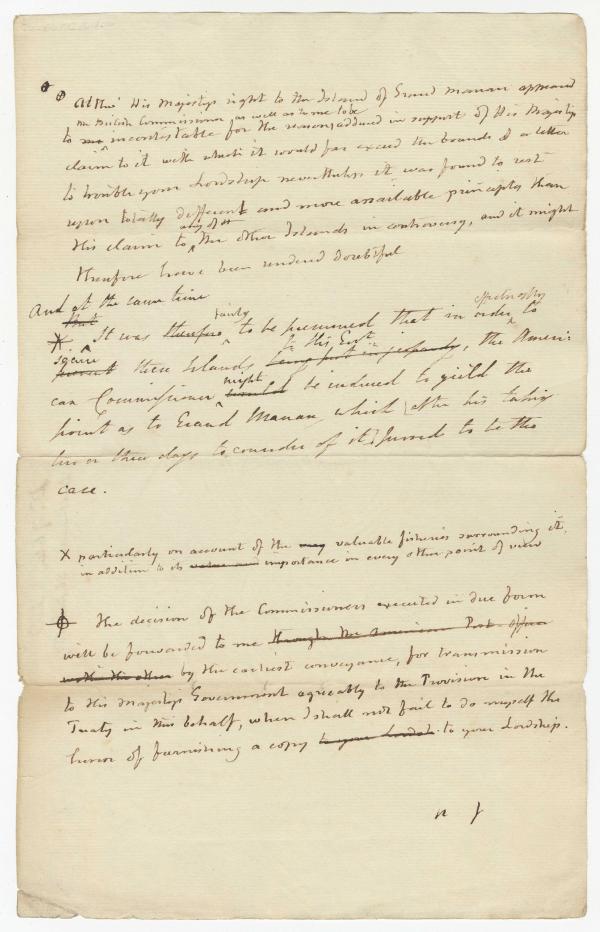 Altho' His Majestys right to the Island of Grand Manan appeared
the British Commissioner as well as to me to be
to me incontestable for the reasons adduced in support of His Majestys
claim to it with which it would far exceed the bounds of a letter
to trouble your Lordship nevertheless it was found to rest
upon totally different and more assailable principles than
any of
His claim to the other Islands in controversy, and it might
therefore have been rendered doubtful
And at the same time
But
X It was therefore fairly to be presumed that in order to
secure these Islands being put in jeopardy, the Ameri-
can Commissioner might would be induced to yield the
point as to Grand Manan, which after his taking
two or three days to consider of it proved to be the
case.
X particularly on account of the valuable fisheries surrounding it,
in addition to its importance in every other point of view
The decision of the Commissioners executed in due form
will be forwarded to me through the American Post Office
with the other by the earliest conveyance, for transmission
to His Majestys Government agreeably to the Provision in the
Treaty in this behalf, when I shall not fail to do myself the
honor of furnishing a copy to your Lordsh to your Lordship.